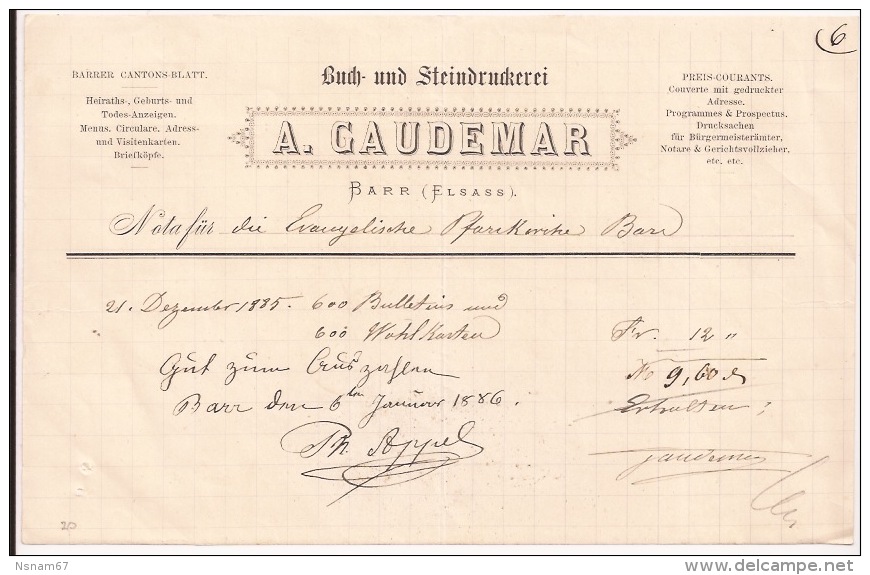 6
BARRER CANTONS-BLATT.
Heiraths-, Geburts- und
Todes-Anzeigen.
Menus, Circulare, Adress-
und Visitenkarten.
Briefköpfe.
Buch- und Steindruckerei
A. GAUDEMAR
BARR (ELSASS).
PREIS-COURANTS.
Couverte mit gedruckter
Adresse.
Programmes & Prospectus.
Drucksachen
für Bürgermeisterämter,
Notare & Gerichtsvollzieher,
etc. etc.
Nota für die Evangelische Pfarrkirche Barr
21. Dezember 1885. 600 Bulletins und
600 Wahlkarten Fr. 12 "
Gut zum Auszahlen
9,60
Barr den 6ten Januar 1886.
Erhalten:
Ph. Appel
Gaudemar
20
Nsnam67
www.delcampe.net